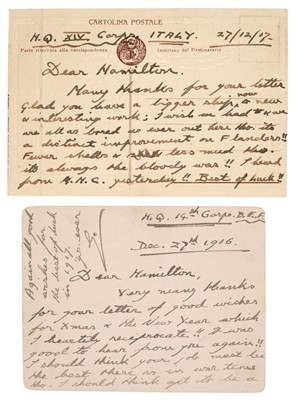 CARTOLINA POSTALE
H.Q. XIV Corps. ITALY. 27/12/17.
Parte riservata alla corrispondenza
Indirizzo del Destinatario
Dear Hamilton.
Many thanks for your letter
Glad you have a bigger ship, now a new
& interesting work; I wish we had to & we
are all as bored as ever out here tho. its
a distinct improvement on Flanders!!
Fewer shells & less mud tho.
its always the bloody war!! I heard
from H.H.C. yesterday!! Best of luck!!
H.Q. 14th Corps. B.E.F.
Dec. 27th 1916.
Again all good
wishes for
the best of luck
in 1917.
Yrs. ever
G.
Dear Hamilton,
Very many thanks
for your letter of good wishes
for Xmas & the New Year which
I heartily reciprocate!! It was
good to hear from you again!!
I should think your job must be
the best there is in war time
tho. I should think get to be a